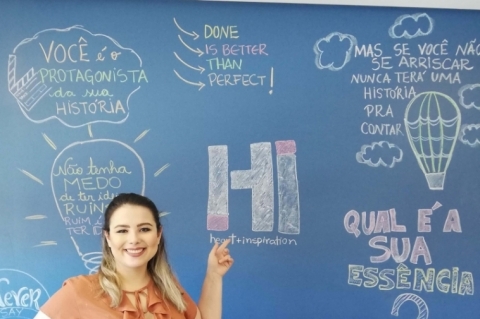 VOCÊ é o
PROTAGONISTA
da sua
HISTÓRIA
DONE
IS BETTER
THAN
PERFECT!
MAS SE VOCÊ NÃO
SE ARRISCAR
NUNCA TERÁ UMA
HISTÓRIA
PRA
CONTAR
Não tenha
MEDO
de ter
RUIM é
TER
Hi
heart+inspiration
QUAL É A
SUA
ESSÊNCIA
?
Never